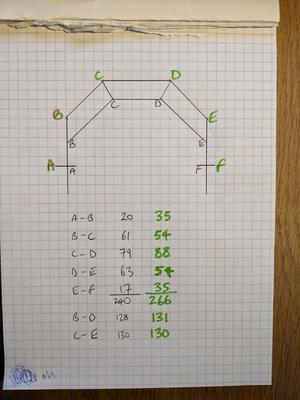 C D
B C D E
B E
A A F F
A-B 20 35
B-C 61 54
C-D 79 88
D-E 63 54
E-F 17 35
240 266
B-D 128 131
C-E 130 130